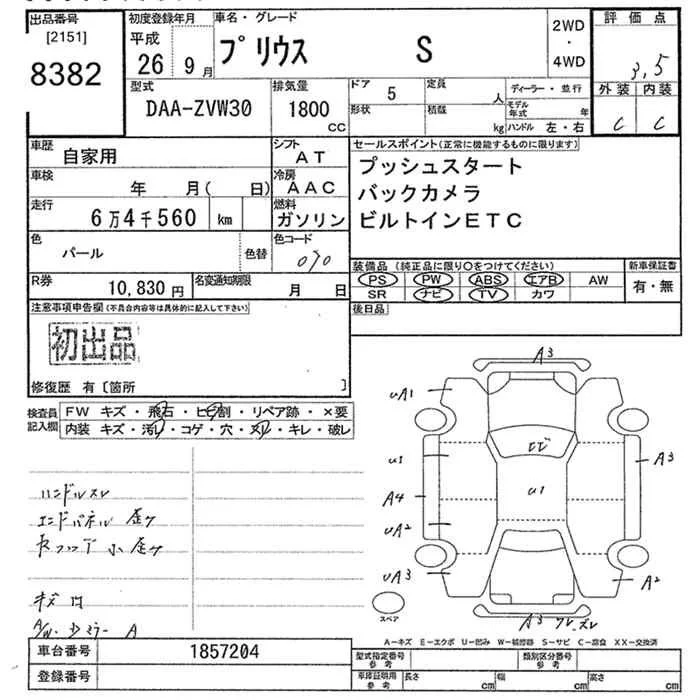 出品番号
[2151]
8382
初度登録年月
平成
26 9月
車名・グレード
プリウス S
2WD
・
4WD
評価点
3.5
外装 内装
C C
型式
DAA-ZVW30
排気量
1800
CC
ドア 5
形状
定員 人
積載 kg
ディーラー・並行
モデル年式 年
ハンドル 左・右
車歴
自家用
シフト
AT
車検
年 月( 日)
冷房
AAC
走行
6万4千560 km
燃料
ガソリン
色
パール
色替
色コード
070
R券
10,830円
名変通知期限
月 日
セールスポイント(正常に機能するものに限ります)
プッシュスタート
バックカメラ
ビルトインETC
装備品 (純正品に限り○をつけてください)
PS PW ABS エアB AW
SR ナビ TV カワ
新車保証書
有・無
後日品
注意事項申告欄(不具合内容等は具体的に記入して下さい)
初出品
修復歴 有〔箇所 〕
検査員
記入欄
FW キズ・飛石・ヒビ割・リペア跡・×要
内装 キズ・汚れ・コゲ・穴・スレ・キレ・破レ
ハンドルスレ
エンドパネル 歪ケ
キズ 凹
A/W・ A
A3
uA1
u1
ヒビ
A3
A4
u1
uA2
uA3
A2
スペア
A3 ワレ、ズレ
A-キズ E-エクボ U-凹み W-補修跡 S-サビ C-腐食 XX-交換済
車台番号
1857204
登録番号
型式指定番号
参考
類別区分番号
参考
車庫証明用
参考
長さ cm
幅 cm
高さ cm